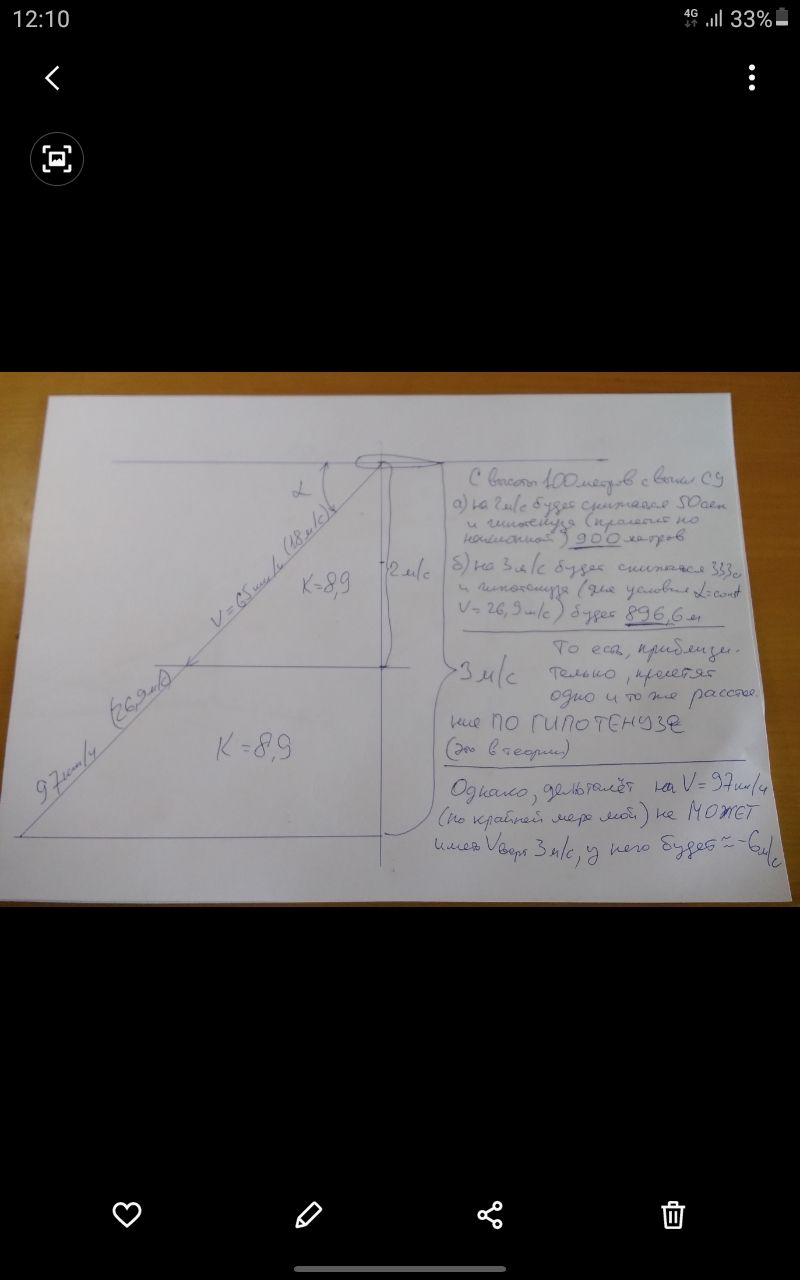 12:10
4G
33%
С высоты 100 метров с выкл СУ
а) на 2 м/с будет снижаться 50 сек
и гипотенуза (пролетит по
наклонной) 900 метров
б) на 3 м/с будет снижаться 33,3с
и гипотенуза (для условия α=const
V=26,9 м/с) будет 896,6 м
То есть, приблизи-
тельно, пролетят
одно и то же расстоя-
ние ПО ГИПОТЕНУЗЕ
(это в теории)
Однако, дельталёт на V=97 км/ч
(по крайней мере мой) не МОЖЕТ
иметь Vверт 3 м/с, у него будет ≈ -6 м/с
α
V=65 км/ч (18 м/с)
K=8,9
2 м/с
3 м/с
(26,9 м/с)
97 км/ч
K=8,9